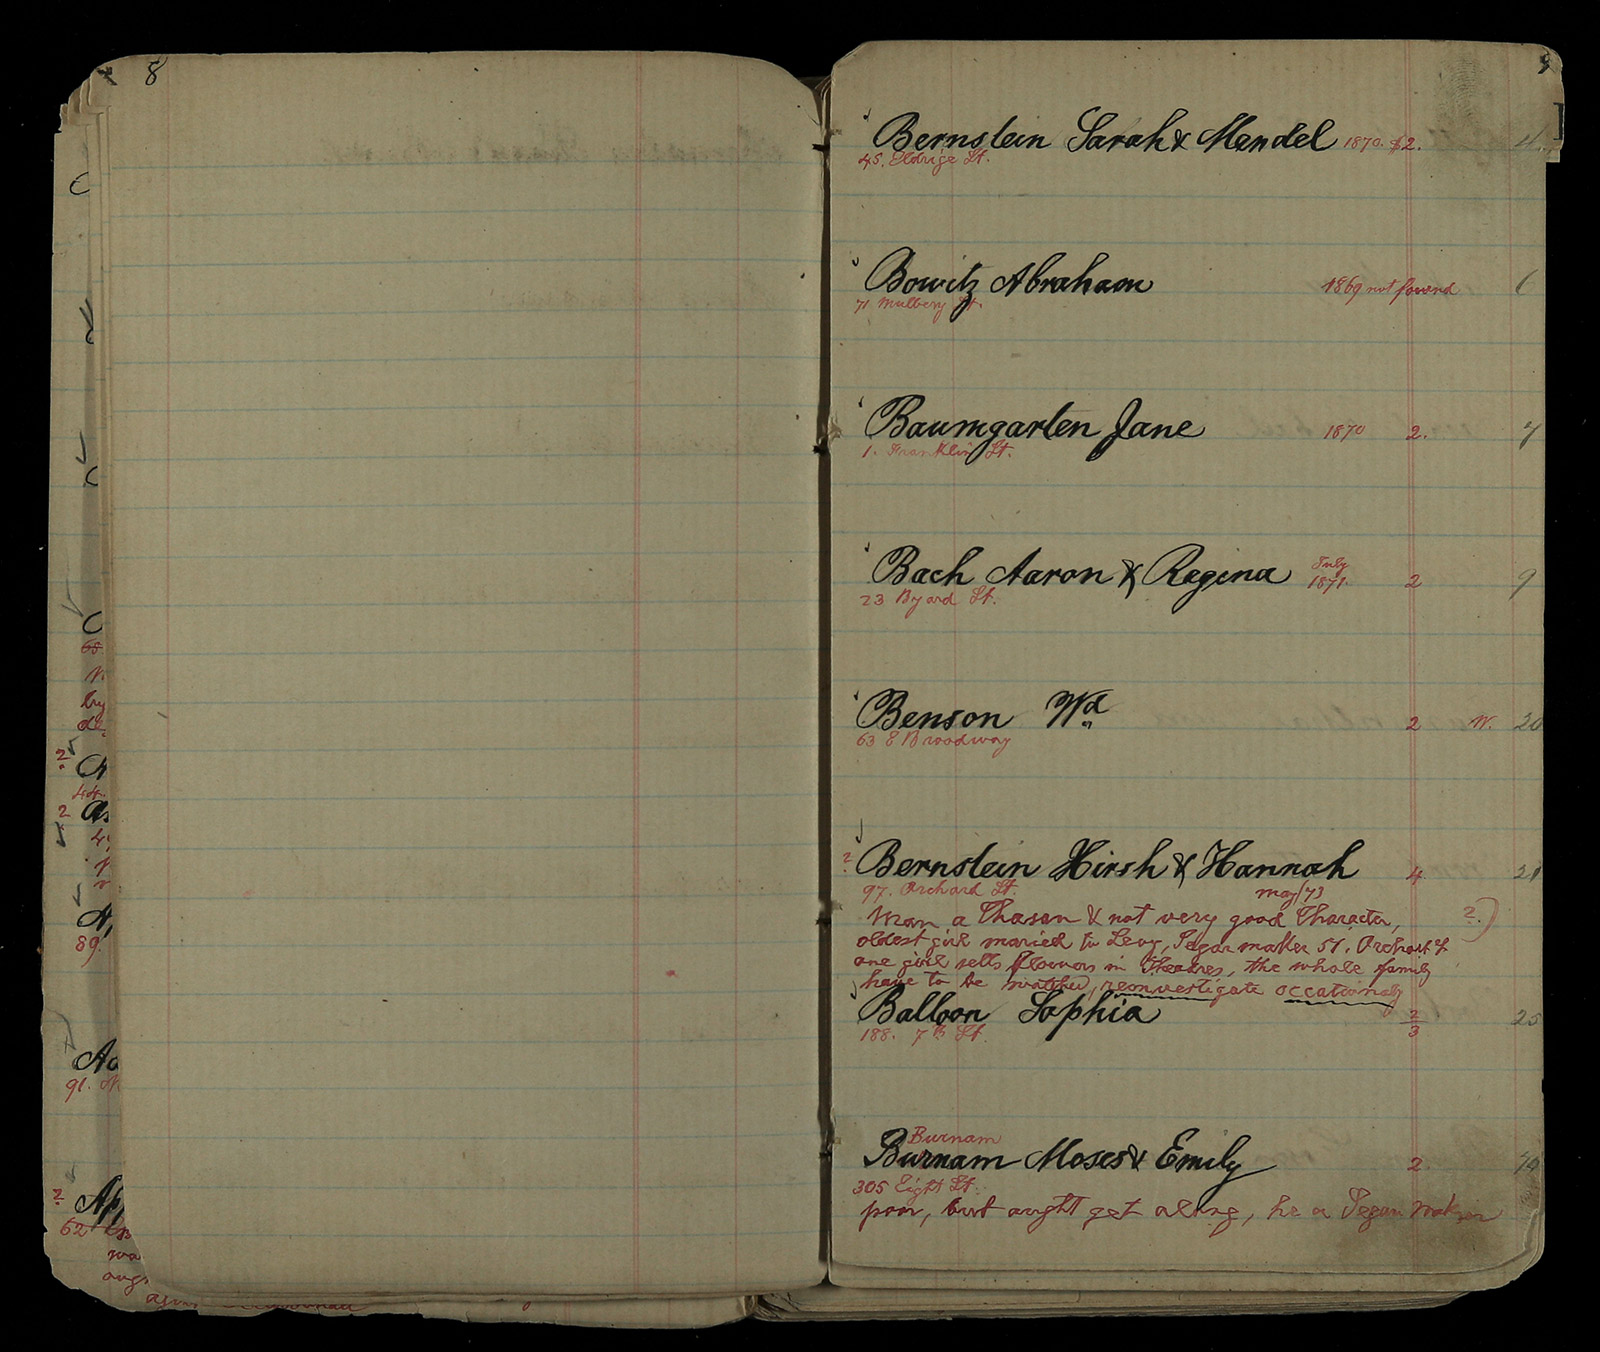 8
Bernstein Sarah & Mendel 1870. $2. 4.
45. Eldrige St.
Bowitz Abraham 1869 not found 6
71 Mulbery St.
Baumgarten Jane 1870 2. 7
1. Franklin St.
Bach Aaron & Regina July 1871. 2 9
23 Byard St.
Benson Wd 2 W. 20
638 Broadway
? Bernstein Hirsh & Hannah 4. 21
97. Orchard St. may/73
Man a Chasan & not very good Character, ?)
oldest girl maried to Levy, Segar maker 51. Orchard St
one girl sells flowers in Theatres, the whole family
have to be watched, reinvestigate occationaly
Balloon Sophia 2/3 25
188. 7th St.
Burnam
Burnam Moses & Emily 2.
305 Eight St.
poor, but aught get along, he a Segar Maker